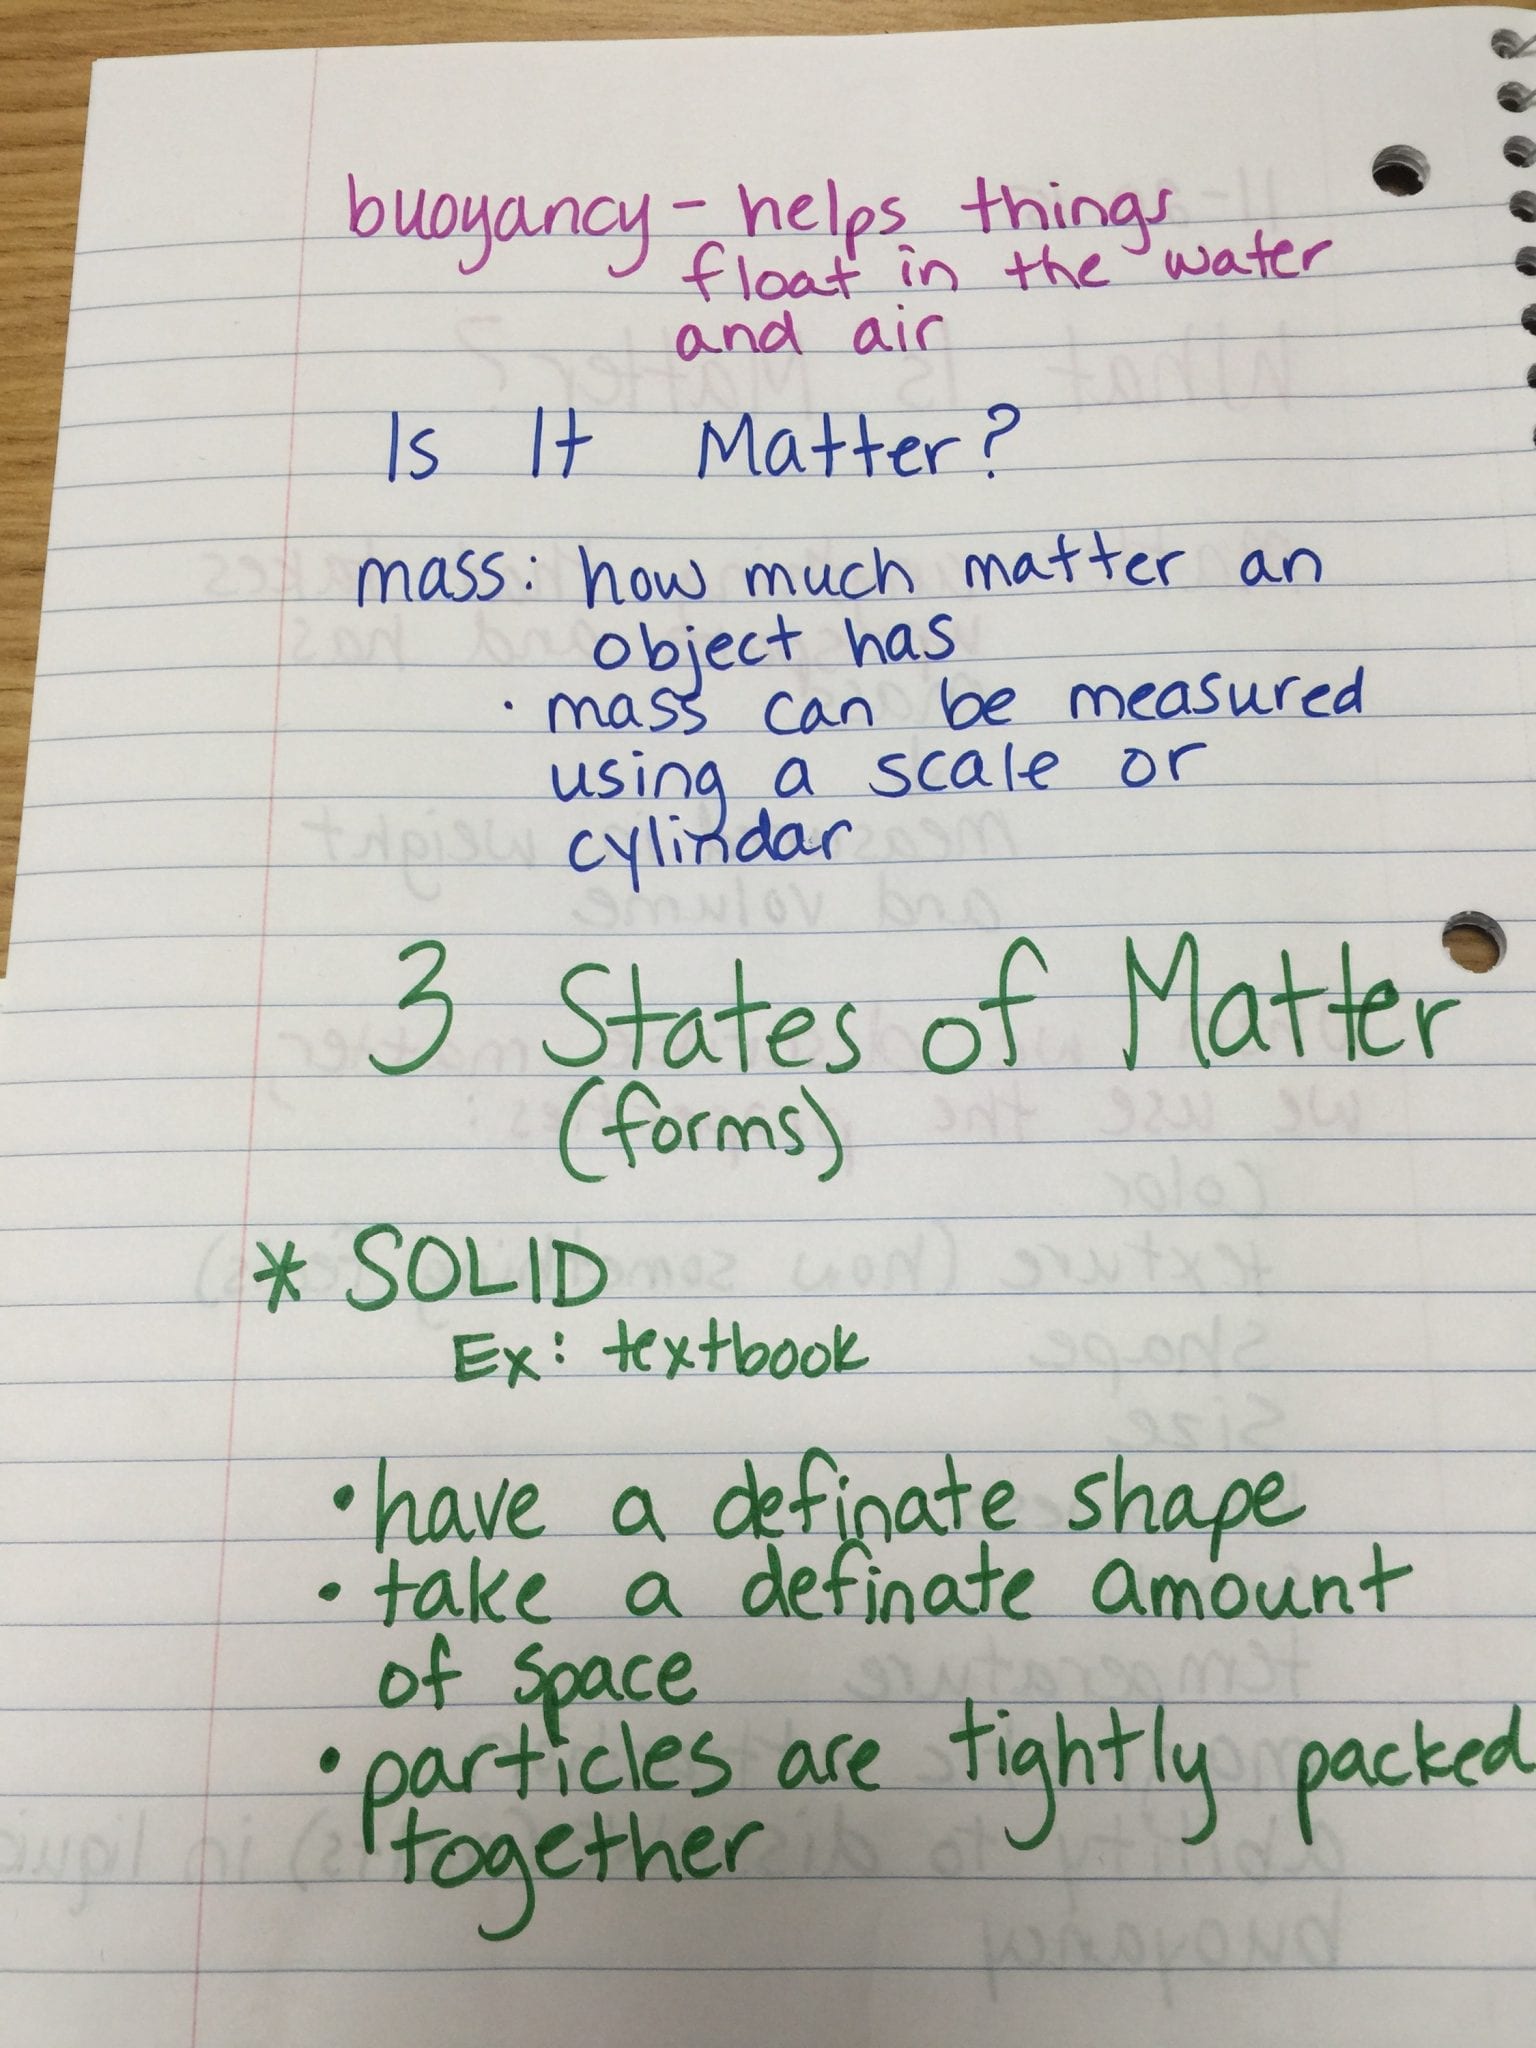 buoyancy - helps things
float in the water
and air
Is It Matter?
mass: how much matter an
object has
· mass can be measured
using a scale or
cylindar
3 States of Matter
(forms)
* SOLID
Ex: textbook
• have a definate shape
• take a definate amount
of space
• particles are tightly packed
together